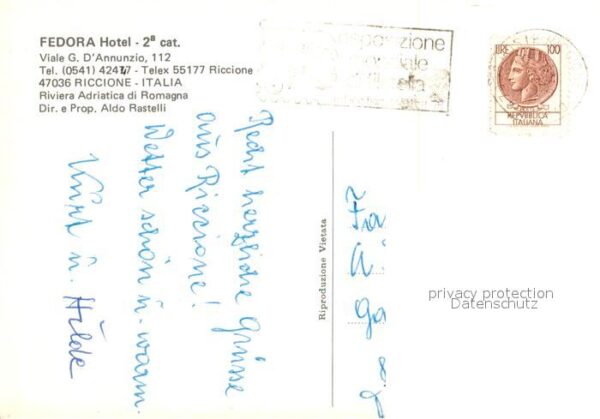 FEDORA Hotel - 2ª cat.
Viale G. D'Annunzio, 112
Tel. (0541) 42417 - Telex 55177 Riccione
47036 RICCIONE - ITALIA
Riviera Adriatica di Romagna
Dir. e Prop. Aldo Rastelli
LIRE 100
REPVBBLICA
ITALIANA
Recht herzliche Grüsse
aus Riccione!
Wetter schön u. warm.
Kurt u. Hilde
Riproduzione Vietata
Fa
privacy protection
Datenschutz